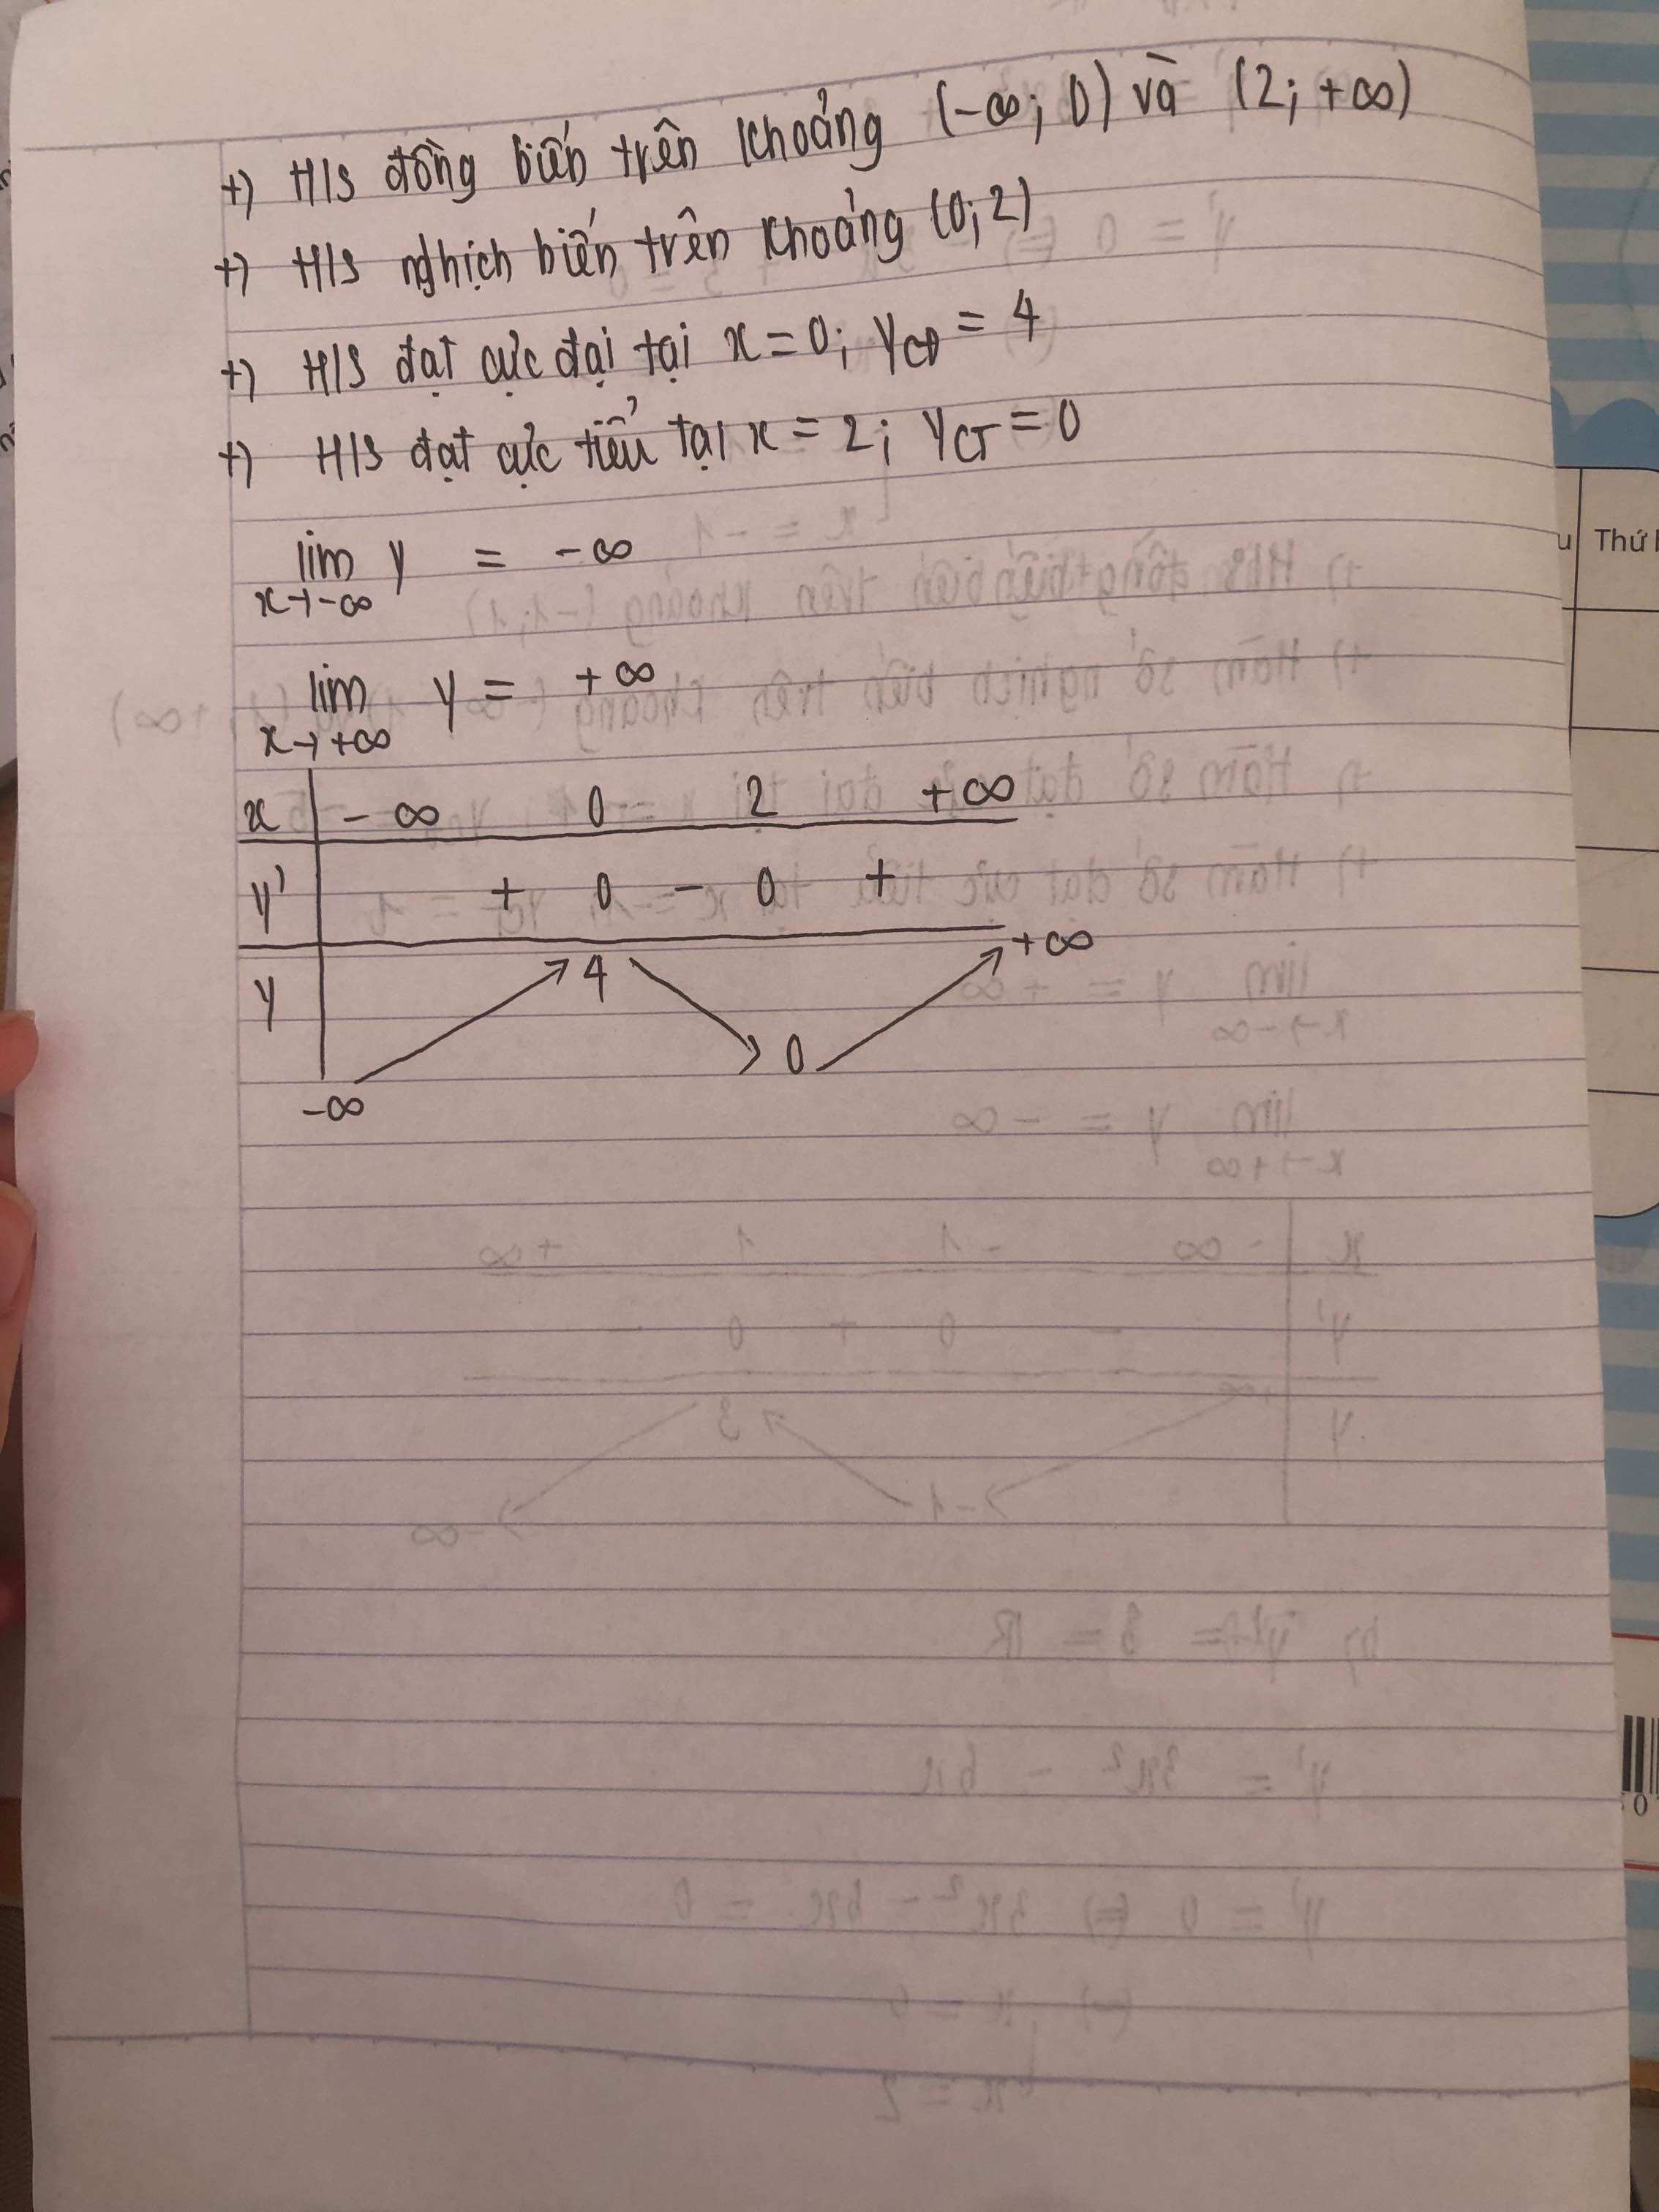 +) H/S đồng biến trên khoảng (-∞; 0) và (2; +∞)
+) H/S nghịch biến trên khoảng (0; 2)
+) H/S đạt cực đại tại x = 0; yCĐ = 4
+) H/S đạt cực tiểu tại x = 2; yCT = 0
lim y = -∞
x→-∞
lim y = +∞
x→+∞
x -∞ 0 2 +∞
y' + 0 - 0 +
+∞
y 4
0
-∞
Thứ
0